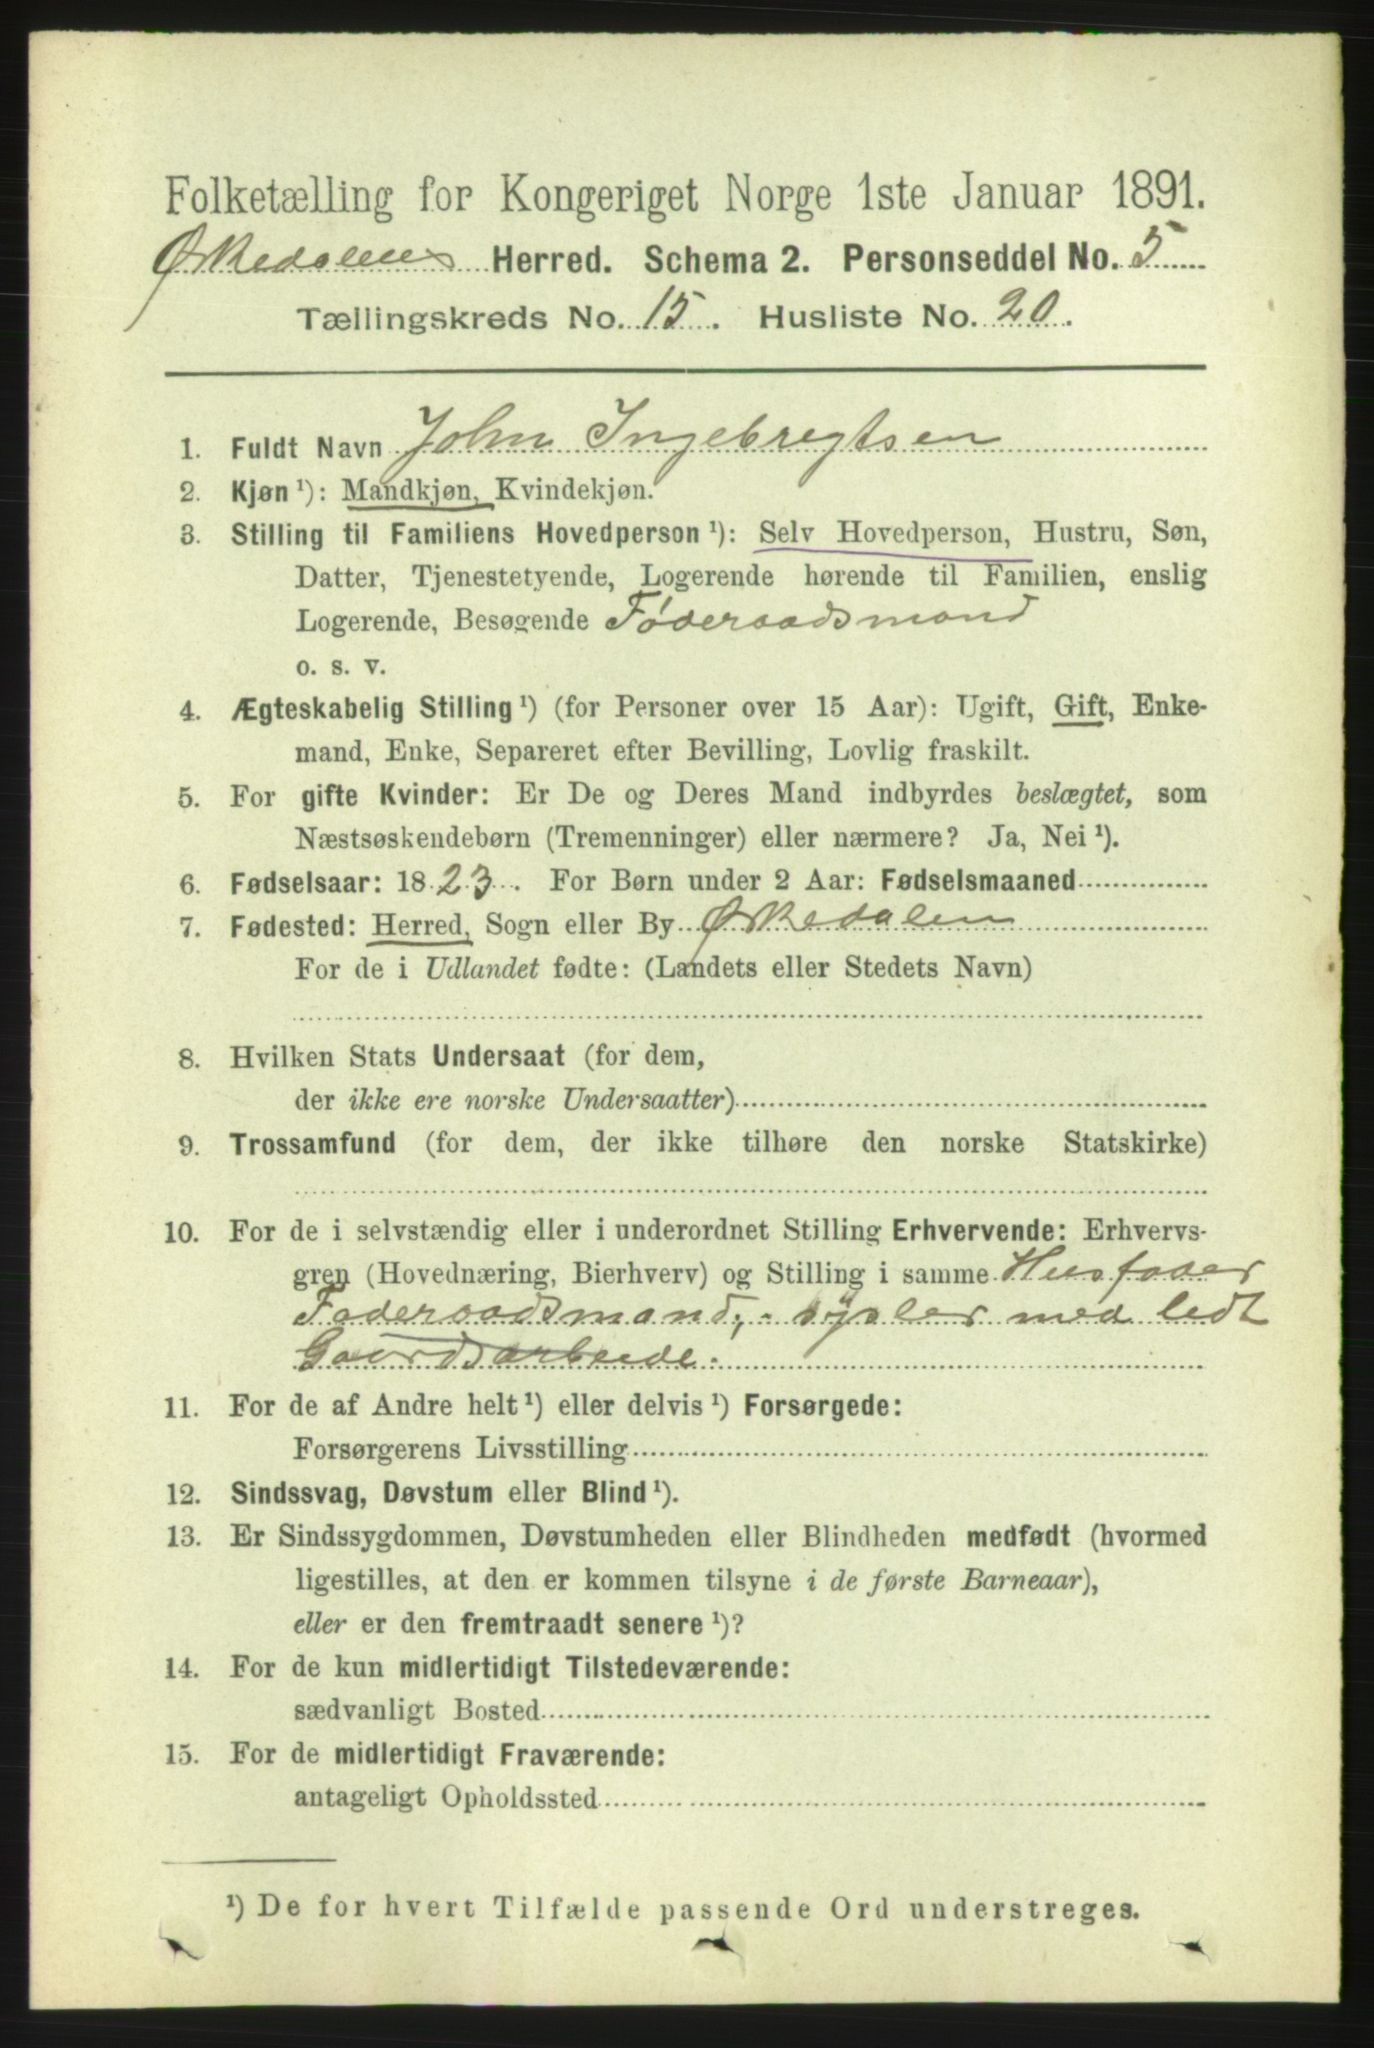 Folketælling for Kongeriget Norge 1ste Januar 1891.
Ørkedalens Herred. Schema 2. Personseddel No. 5
Tællingskreds No. 15. Husliste No. 20.
1. Fuldt Navn John Ingebregtsen
2. Kjøn ¹): Mandkjøn, Kvindekjøn.
3. Stilling til Familiens Hovedperson ¹): Selv Hovedperson, Hustru, Søn,
Datter, Tjenestetyende, Logerende hørende til Familien, enslig
Logerende, Besøgende Føderaadsmand
o. s. v.
4. Ægteskabelig Stilling ¹) (for Personer over 15 Aar): Ugift, Gift, Enke-
mand, Enke, Separeret efter Bevilling, Lovlig fraskilt.
5. For gifte Kvinder: Er De og Deres Mand indbyrdes beslægtet, som
Næstsøskendebørn (Tremenninger) eller nærmere? Ja, Nei ¹).
6. Fødselsaar: 1823. For Børn under 2 Aar: Fødselsmaaned
7. Fødested: Herred, Sogn eller By Ørkedalen
For de i Udlandet fødte: (Landets eller Stedets Navn)
8. Hvilken Stats Undersaat (for dem,
der ikke ere norske Undersaatter)
9. Trossamfund (for dem, der ikke tilhøre den norske Statskirke)
10. For de i selvstændig eller i underordnet Stilling Erhvervende: Erhvervs-
gren (Hovednæring, Bierhverv) og Stilling i samme Husfader
Føderaadsmand, sysler med lidt
Gaardsarbeide.
11. For de af Andre helt ¹) eller delvis ¹) Forsørgede:
Forsørgerens Livsstilling
12. Sindssvag, Døvstum eller Blind ¹).
13. Er Sindssygdommen, Døvstumheden eller Blindheden medfødt (hvormed
ligestilles, at den er kommen tilsyne i de første Barneaar),
eller er den fremtraadt senere ¹)?
14. For de kun midlertidigt Tilstedeværende:
sædvanligt Bosted
15. For de midlertidigt Fraværende:
antageligt Opholdssted
¹) De for hvert Tilfælde passende Ord understreges.